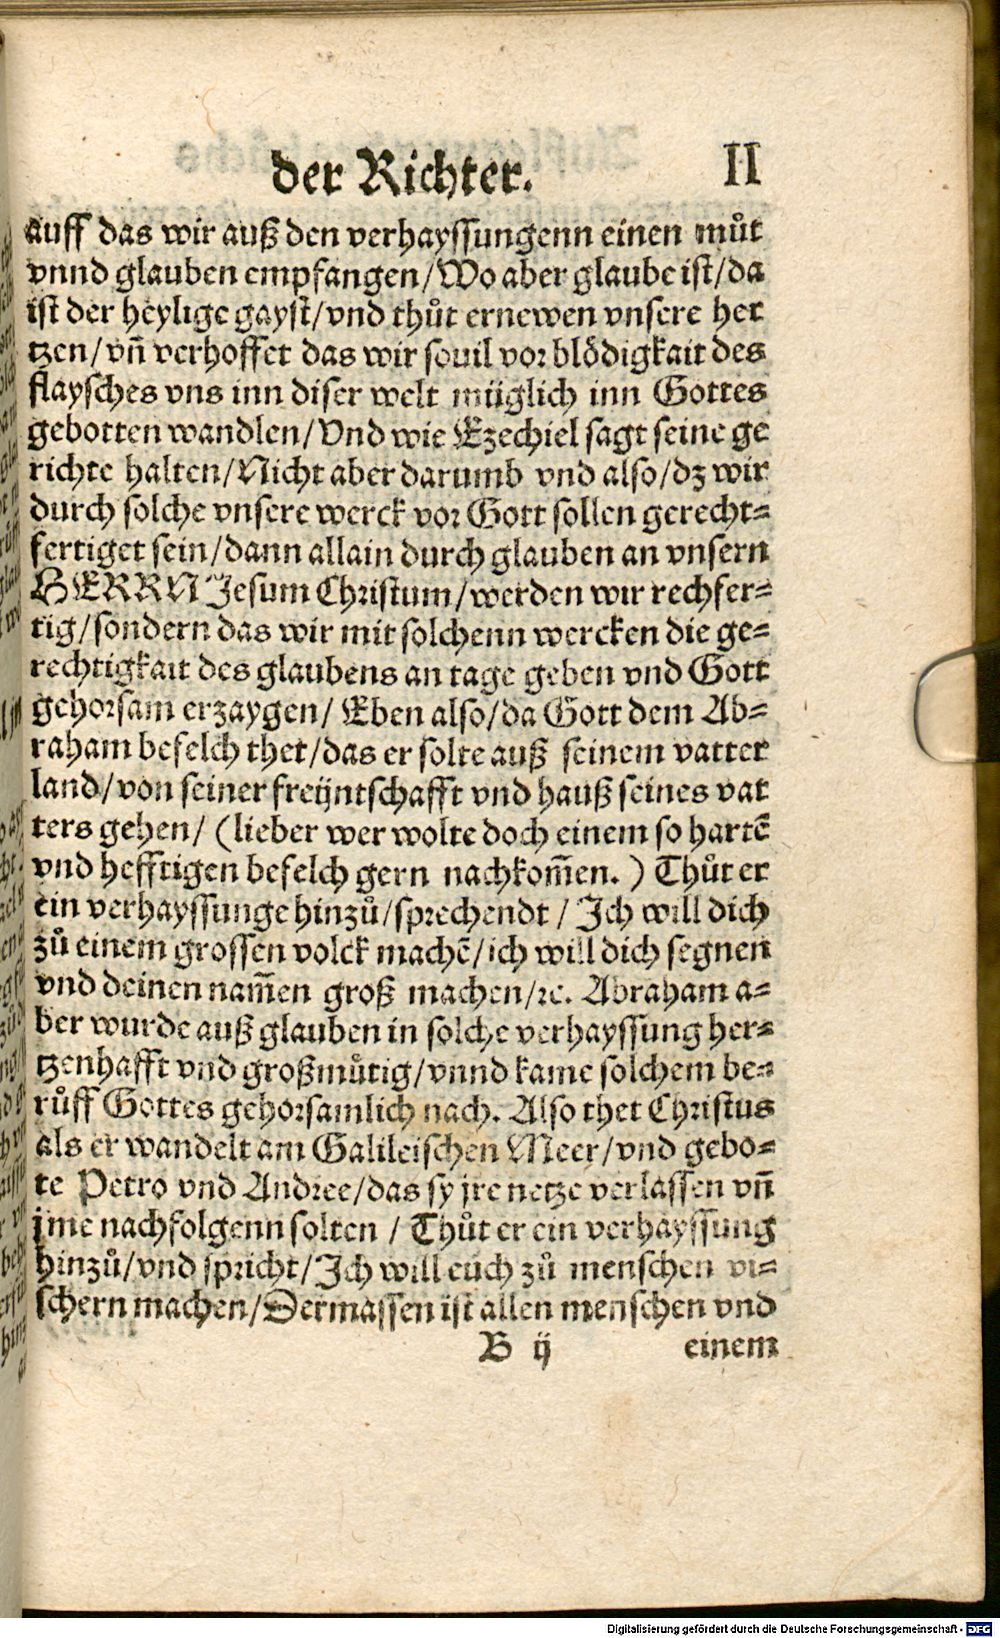 der Richter. II
auff das wir auß den verhayssungenn einen můt
vnnd glauben empfangen/Wo aber glaube ist/da
ist der heylige gayst/vnd thůt ernewen vnsere her
tzen/vñ verhoffet das wir souil vor blödigkait des
flaysches vns inn diser welt müglich inn Gottes
gebotten wandlen/Vnd wie Ezechiel sagt seine ge
richte halten/Nicht aber darumb vnd also/dz wir
durch solche vnsere werck vor Gott sollen gerecht-
fertiget sein/dann allain durch glauben an vnsern
HERRN Jesum Christum/werden wir rechfer-
tig/sondern das wir mit solchenn wercken die ge-
rechtigkait des glaubens an tage geben vnd Gott
gehorsam erzaygen/ Eben also/da Gott dem Ab-
raham befelch thet/das er solte auß seinem vatter
land/von seiner freÿntschafft vnd hauß seines vat
ters gehen/ (lieber wer wolte doch einem so hartẽ
vnd hefftigen befelch gern nachkom̃en.) Thůt er
ein verhayssunge hinzů/sprechendt / Ich will dich
zů einem grossen volck machẽ/ich will dich segnen
vnd deinen nam̃en groß machen/ꝛc. Abraham a-
ber wurde auß glauben in solche verhayssung her-
tzenhafft vnd großmůtig/vnnd kame solchem be-
růff Gottes gehorsamlich nach. Also thet Christus
als er wandelt am Galileischen Meer/vnd gebo-
te Petro vnd Andree/das sy jre netze verlassen vñ
jme nachfolgenn solten / Thůt er ein verhayssung
hinzů/vnd spricht/Ich will euch zů menschen vi-
schern machen/Dermassen ist allen menschen vnd
B ij einem
Digitalisierung gefördert durch die Deutsche Forschungsgemeinschaft - DFG